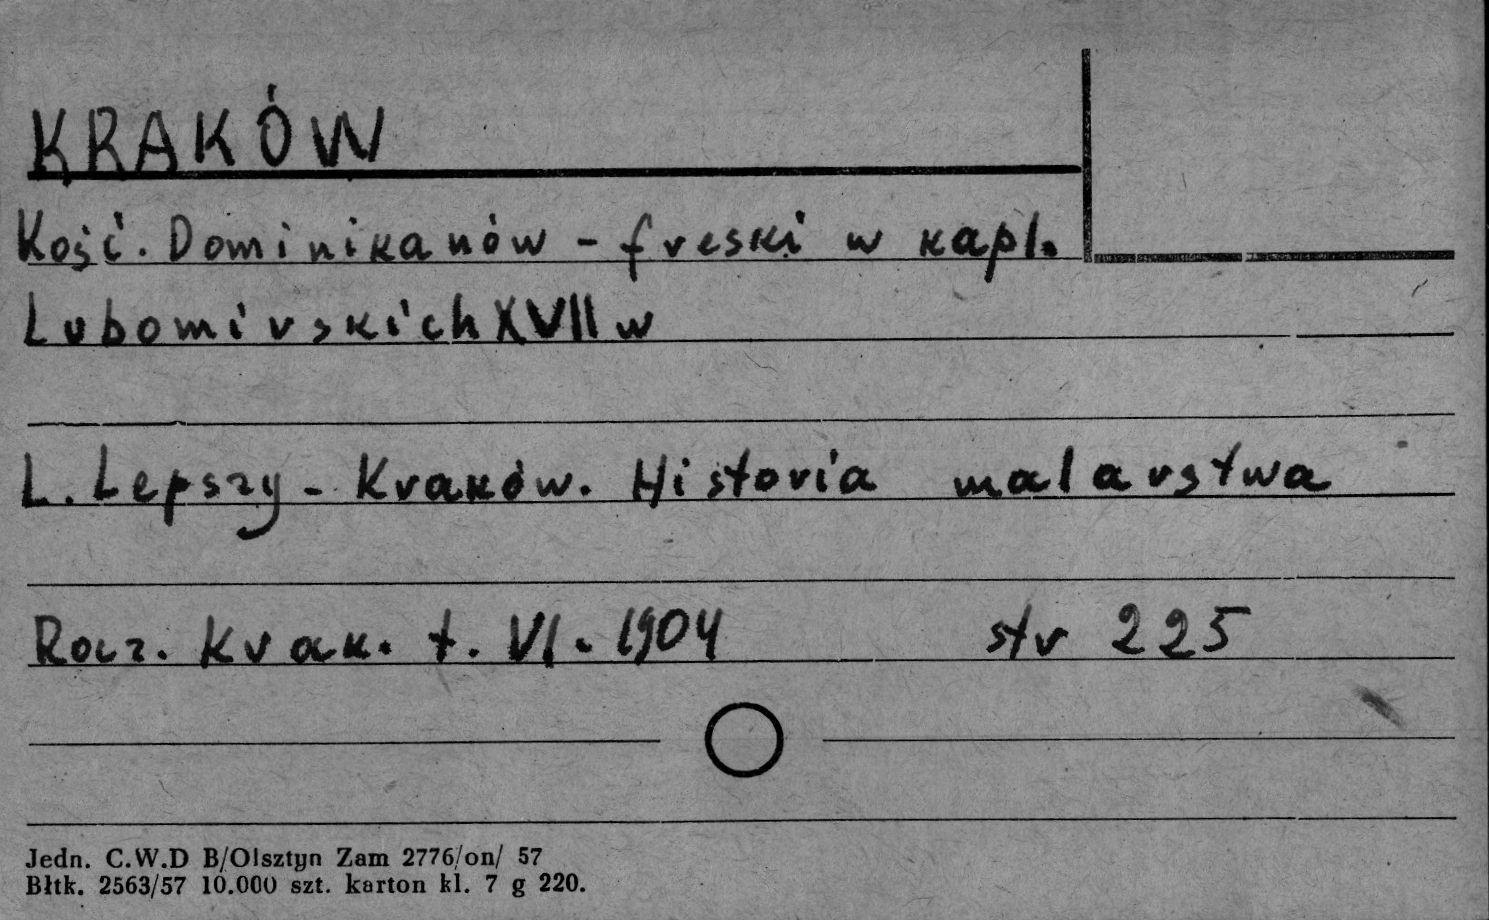 KRAKÓW
Kość. Dominikanów - freski w kapl.
Lubomirskich XVII w
L. Lepszy - Kraków. Historia malarstwa
Rocz. Krak. t. VI. 1904 str 225
Jedn. C.W.D B/Olsztyn Zam 2776/on/ 57
Błtk. 2563/57 10.000 szt. karton kl. 7 g 220.